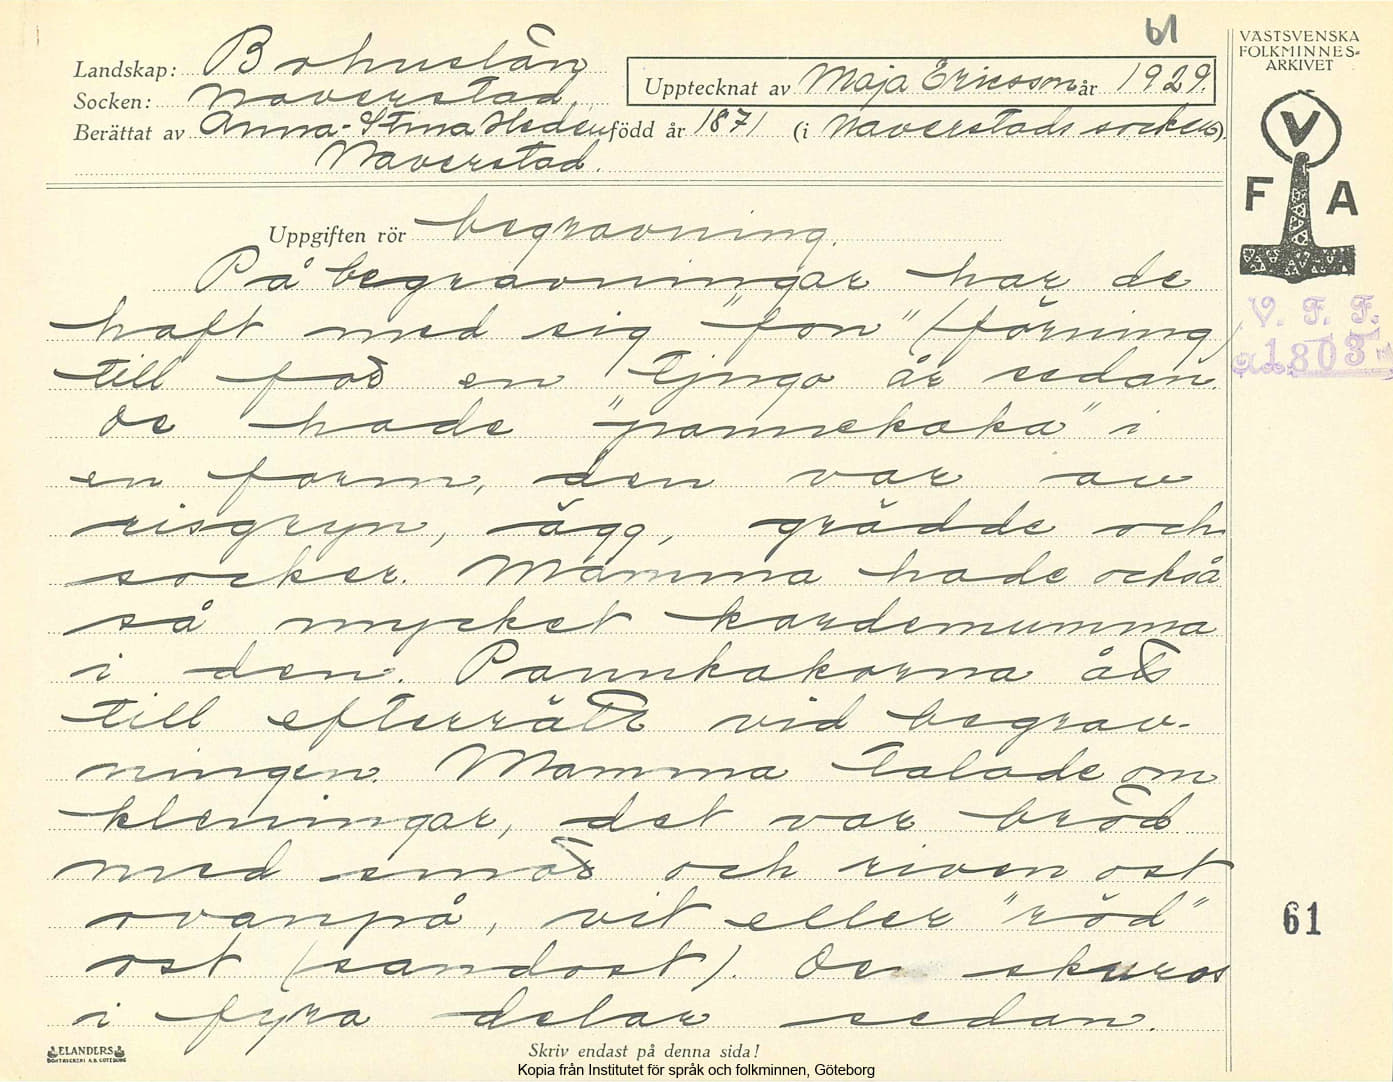 61
Landskap: Bohuslän
Socken: Naverstad.
Upptecknat av Maja Ericsson år 1929.
Berättat av Anna-Stina Hedén född år 1871 (i Naverstads socken)
Naverstad.
VÄSTSVENSKA
FOLKMINNES-
ARKIVET
V
F A
V. F. F.
a1803
Uppgiften rör begravning.
På begravningar har de
haft med sig "fon" (förning)
till för en tjugo år sedan.
De hade "pannekaka" i
en form, den var av
risgryn, ägg, grädde och
socker. Mamma hade också
så mycket kardemumma
i den. Pannkakorna åts
till efterrätt vid begrav-
ningen. Mamma talade om
kleningar, det var bröd
med smör och riven ost
ovanpå, vit eller "röd"
ost (sandost). De skuros
i fyra delar sedan.
61
ELANDERS
BOKTRYCKERI A.B. GÖTEBORG
Skriv endast på denna sida!
Kopia från Institutet för språk och folkminnen, Göteborg